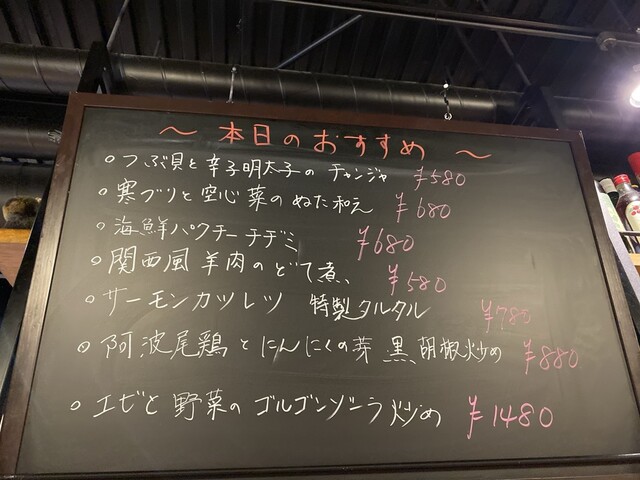 〜 本日のおすすめ 〜
○ つぶ貝と辛子明太子の チャンジャ ¥580
○ 寒ブリと空心菜のぬた和え ¥680
○ 海鮮パクチーチヂミ ¥680
○ 関西風羊肉のどて煮、 ¥580
○ サーモンカツレツ 特製タルタル ¥780
○ 阿波尾鶏とにんにくの芽 黒胡椒炒め ¥880
○ エビと野菜のゴルゴンゾーラ炒め ¥1480